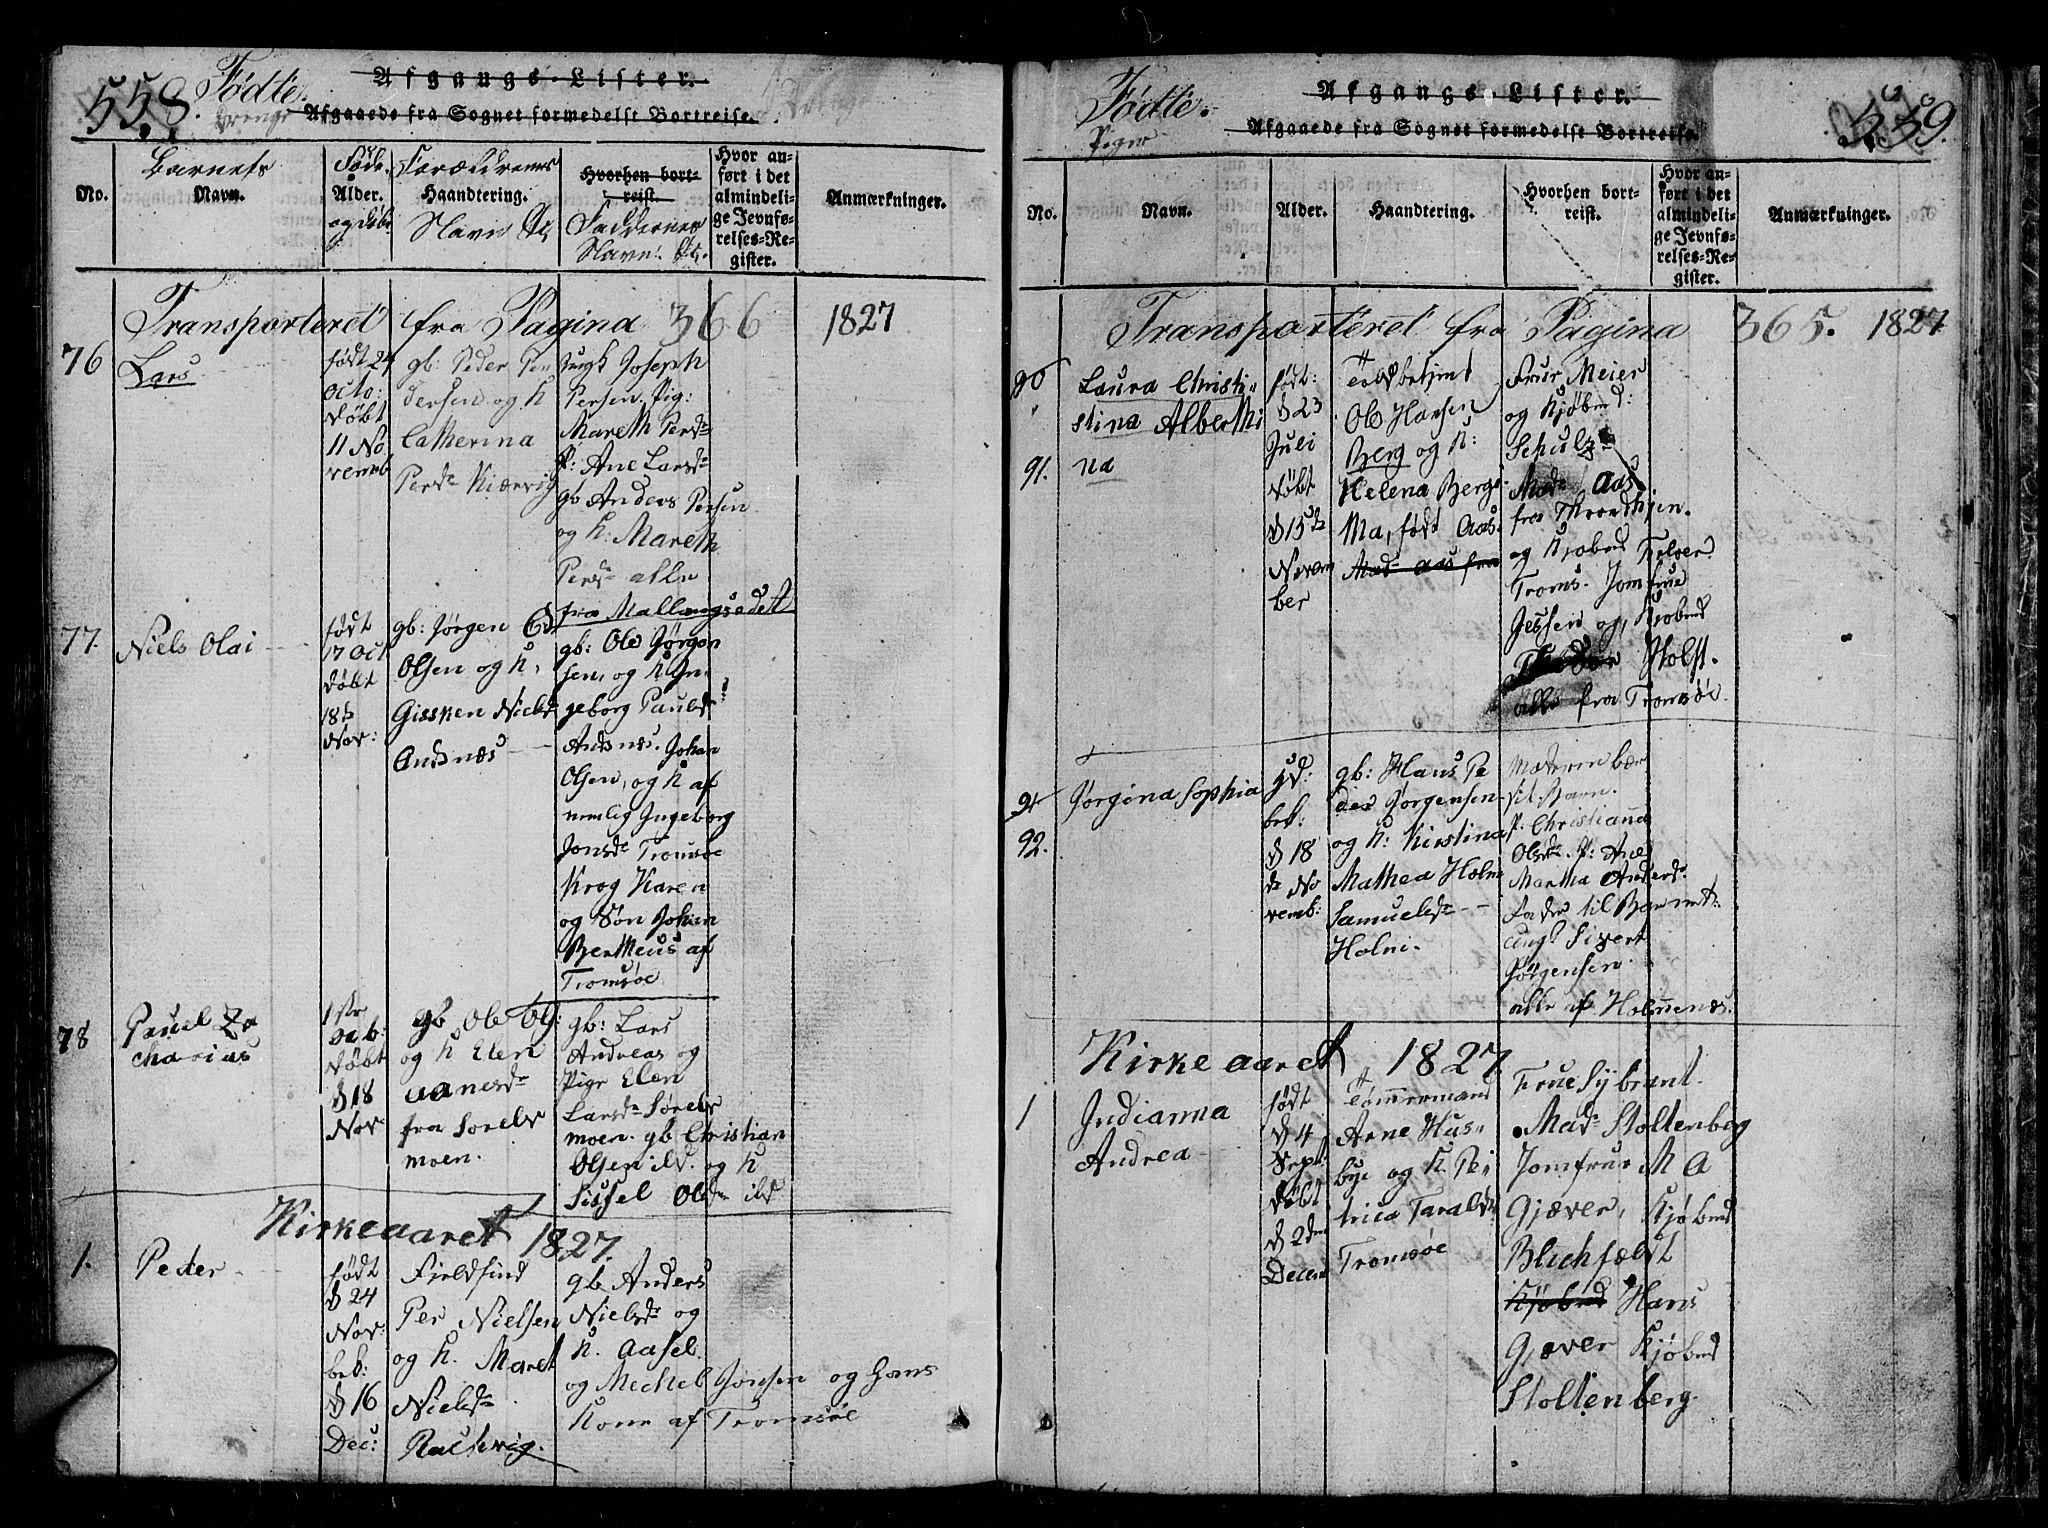 558. Fødte. Afgangs-Lister.
Drenge Afgaaede fra Sognet formedelst Bortreise.
No.
Barnets
Navn.
Føds.
Alder.
og Døbt
Forældrenes
Haandtering.
Navn &c
Hvorhen bort-
reist.
Faddernes
Navn. &c.
Hvor an-
ført i det
almindeli-
ge Jevnfø-
relses-Re-
gister.
Anmærkninger.
Transporteret fra Pagina 366 1827
76
Lars
født 24
Octo:
døbt
11 No
vemb
gb: Peder Pe
dersen og K
Catherina
Persdr Kiærvig
Ungk Joseph
Persen. Pig:
Mareth Persdr
P: Ane Larsdr
gb Anders Persen
og K: Mareth
Persdr alle
fra Mallangseidet
77.
Niels Olai
født
17 Oct
døbt
18d
Nov:
gb: Jørgen Ed
Olsen og K.
Gissken Nielsd
Andsnæs
gb: Ole Jørgen
sen, og K In-
geborg Paulsd
Andsnæs. Johan
Olsen, og K af
nemlig Ingeborg
Jonsdr Tromsøe
Krog Karen
og Søn Johan
Bertheus af
Tromsøe
78
Pauel Za
charias
1ste
Octb:
døbt
d 18
Nov
gb Ole Ols:
og K Elen
Hansdr
fra Sørels
moen.
gb: Lars
Andreas og
Pige Elen
Larsdr Sørels
moen. gb Christian
Olsen ibd. og K
Sissel Olsdr ibd
Kirkeaaret 1827.
1.
Peder
født
d 24
Nov:
beb:
d 16
Dec:
Fjeldfind
Per Nielsen
og K. Maret
Nielsdr
Ralsvig.
gb Anders
Nielsdr og
K. Aasel
og Mechel Jonsen og Hans
Kone af Tromsøe
Fødte. Afgangs-Lister. 559.
Piger Afgaaede fra Sognet formedelst Bortreise.
No.
Navn.
Alder.
Haandtering.
Hvorhen bort-
reist.
Hvor an-
ført i det
almindeli-
ge Jevnfø-
relses-Re-
gister.
Anmærkninger.
Transporteret fra Pagina 365. 1827
90
91.
Laura Christi-
stina Alberthi
na
født:
d 23
Juli
døbt
d 15de
Novem
ber
Toldbetjent
Ole Hansen
Berg og K:
Helena Berge
Ma, født Aas.
Madm Aas fra
Frue Meier
og Kjøbmd:
Schulz
Madm Aas
fra Throndhjem.
og Kjøbmd
Troms. Jomfrue
Jessen og, Kjøbmd
Holst.
alle fra Tromsøe
91
92.
Jørgina Sophia
beb:
d 18
de No
vemb:
gb: Hans Pe
der Jørgensen
og K: Kirstina
Mathea Holm
Samuelsdr
Holm.
Moderen bær
sit Barn.
P. Christianna
Olsdr. P: Ane
Martha Andersdr.
Fader til Barnet
ungk Sivert
Jørgensen
alle af Holmenæs.
Kirkeaaret 1827
1
Indianna
Andrea
født
d 4
Sept:
døbt
d 2den
Decem
Tømmermand
Arne Hus-
bye og K. Pe-
trica Taralds
Tromsøe
Frue Sybrant.
Madm Stoltenbeg
Jomfrue M A
Gjæver, Kjøbmd
Blichfeldt
Kjøbmd Hans
Gjæver Kjøbmd
Stoltenberg.